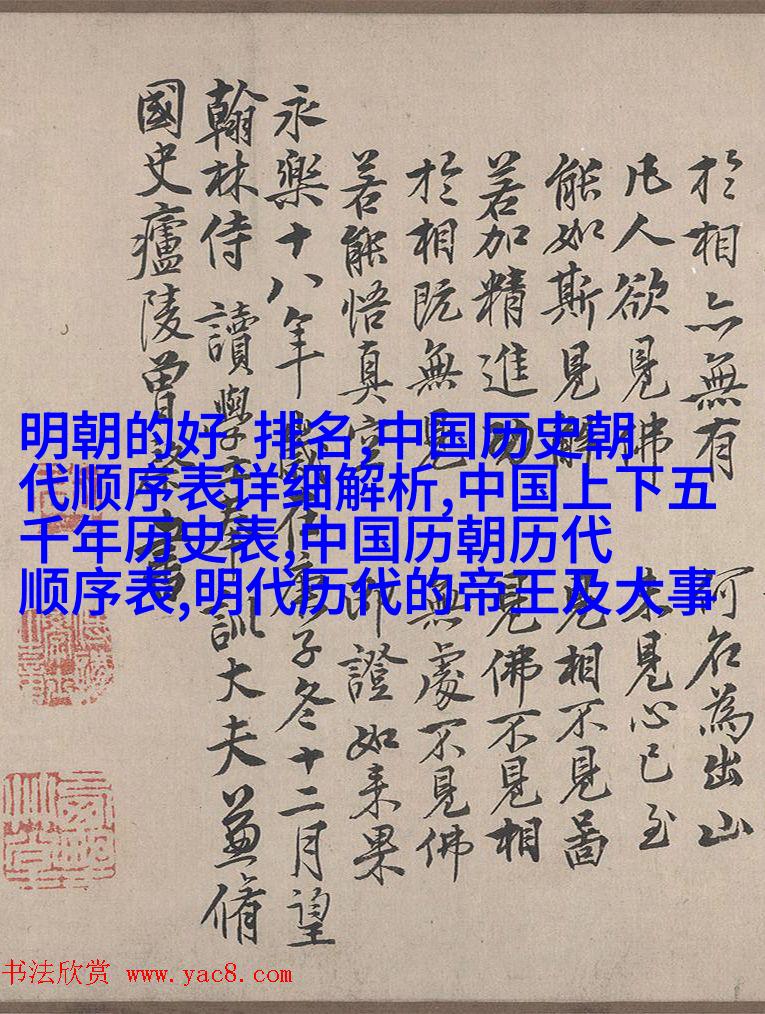 於相亦無有何名為出山
凡人欲見佛未見心已至
能如斯見解見相不見啚
若加精進功見佛不見相
於相既無見無處不見佛
若能悟真空即證如来果
永樂十八年歲在庚子冬十二月望
翰林侍讀學士奉訓大夫兼脩
國史廬陵曾棨書
明朝的好 排名,中国历史朝
代顺序表详细解析,中国上下五
千年历史表,中国历朝历代
顺序表,明代历代的帝王及大事
书法欣赏 www.yac8.com